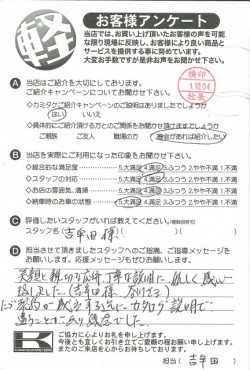 軽
お客様アンケート
当店では、お買い上げ頂いたお客様の声を可能
な限り現場に反映し、お客様により良い商品と
サービスを提供する事に努めています。
大変お手数ですが是非お声をお聞かせ下さい。
検印
1.10.04
社長
A 当店はご紹介を大切にしております。
ご紹介キャンペーンについてお聞かせ下さい。
◇カミタケご紹介キャンペーンのご説明はありましたでしょうか
はい いいえ
◇具体的にご紹介頂ける方とのご関係をお聞かせ頂けますでしょうか
ご親族 ご友人 職場の方 機会があれば紹介したい
B 当店を実際にご利用になった印象をお聞かせ下さい。
◇総合的な満足度 5.大満足 4.満足 3.ふつう 2.やや不満 1.不満
◇スタッフの対応 5.大満足 4.満足 3.ふつう 2.やや不満 1.不満
◇お店の雰囲気、清掃 5.大満足 4.満足 3.ふつう 2.やや不満 1.不満
◇納車時のお車の状態 5.大満足 4.満足 3.ふつう 2.やや不満 1.不満
C 評価したいスタッフがいれば教えてください。(複数回答可)
スタッフ名( 吉牟田 様 )
D 担当させて頂きましたスタッフへのご感想、ご指導メッセージを
お願いします。応援メッセージもお聞かせください。
笑顔と親切な応対、丁寧な説明に
ご協力ありがとうございました。
今後とも宜しくお引き立てご愛顧の程お願い申し上げます。
またのご来店を心からお待ちしております。
担当( 吉牟田 )